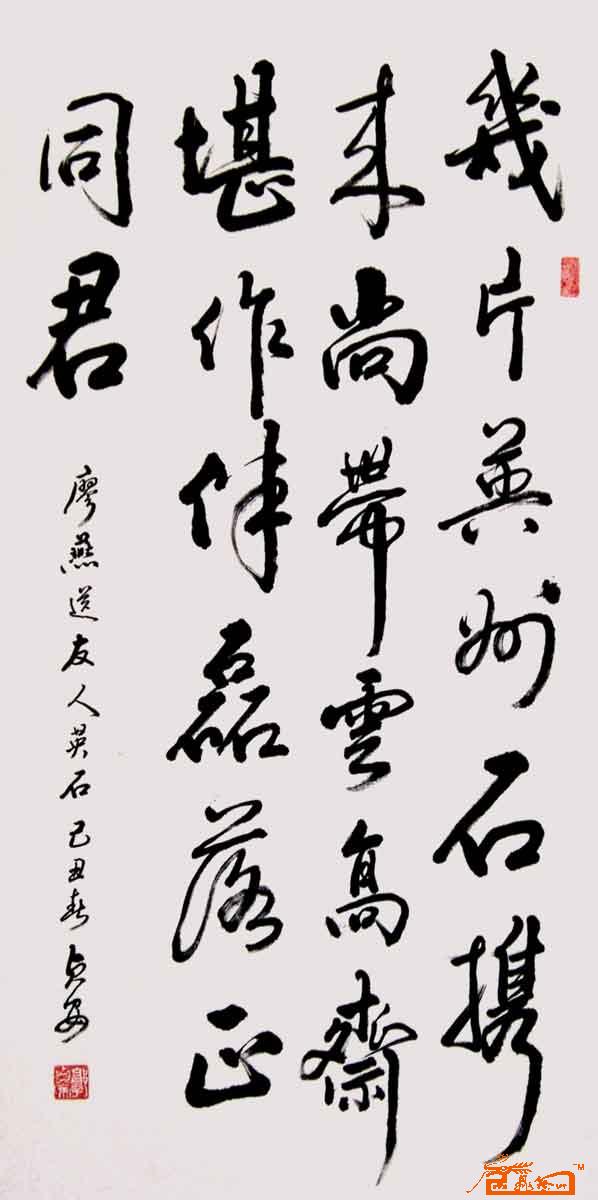 幾片英州石携
来尚帶雲高齋
堪作伴磊落正
同君
廖燕送友人英石己丑春